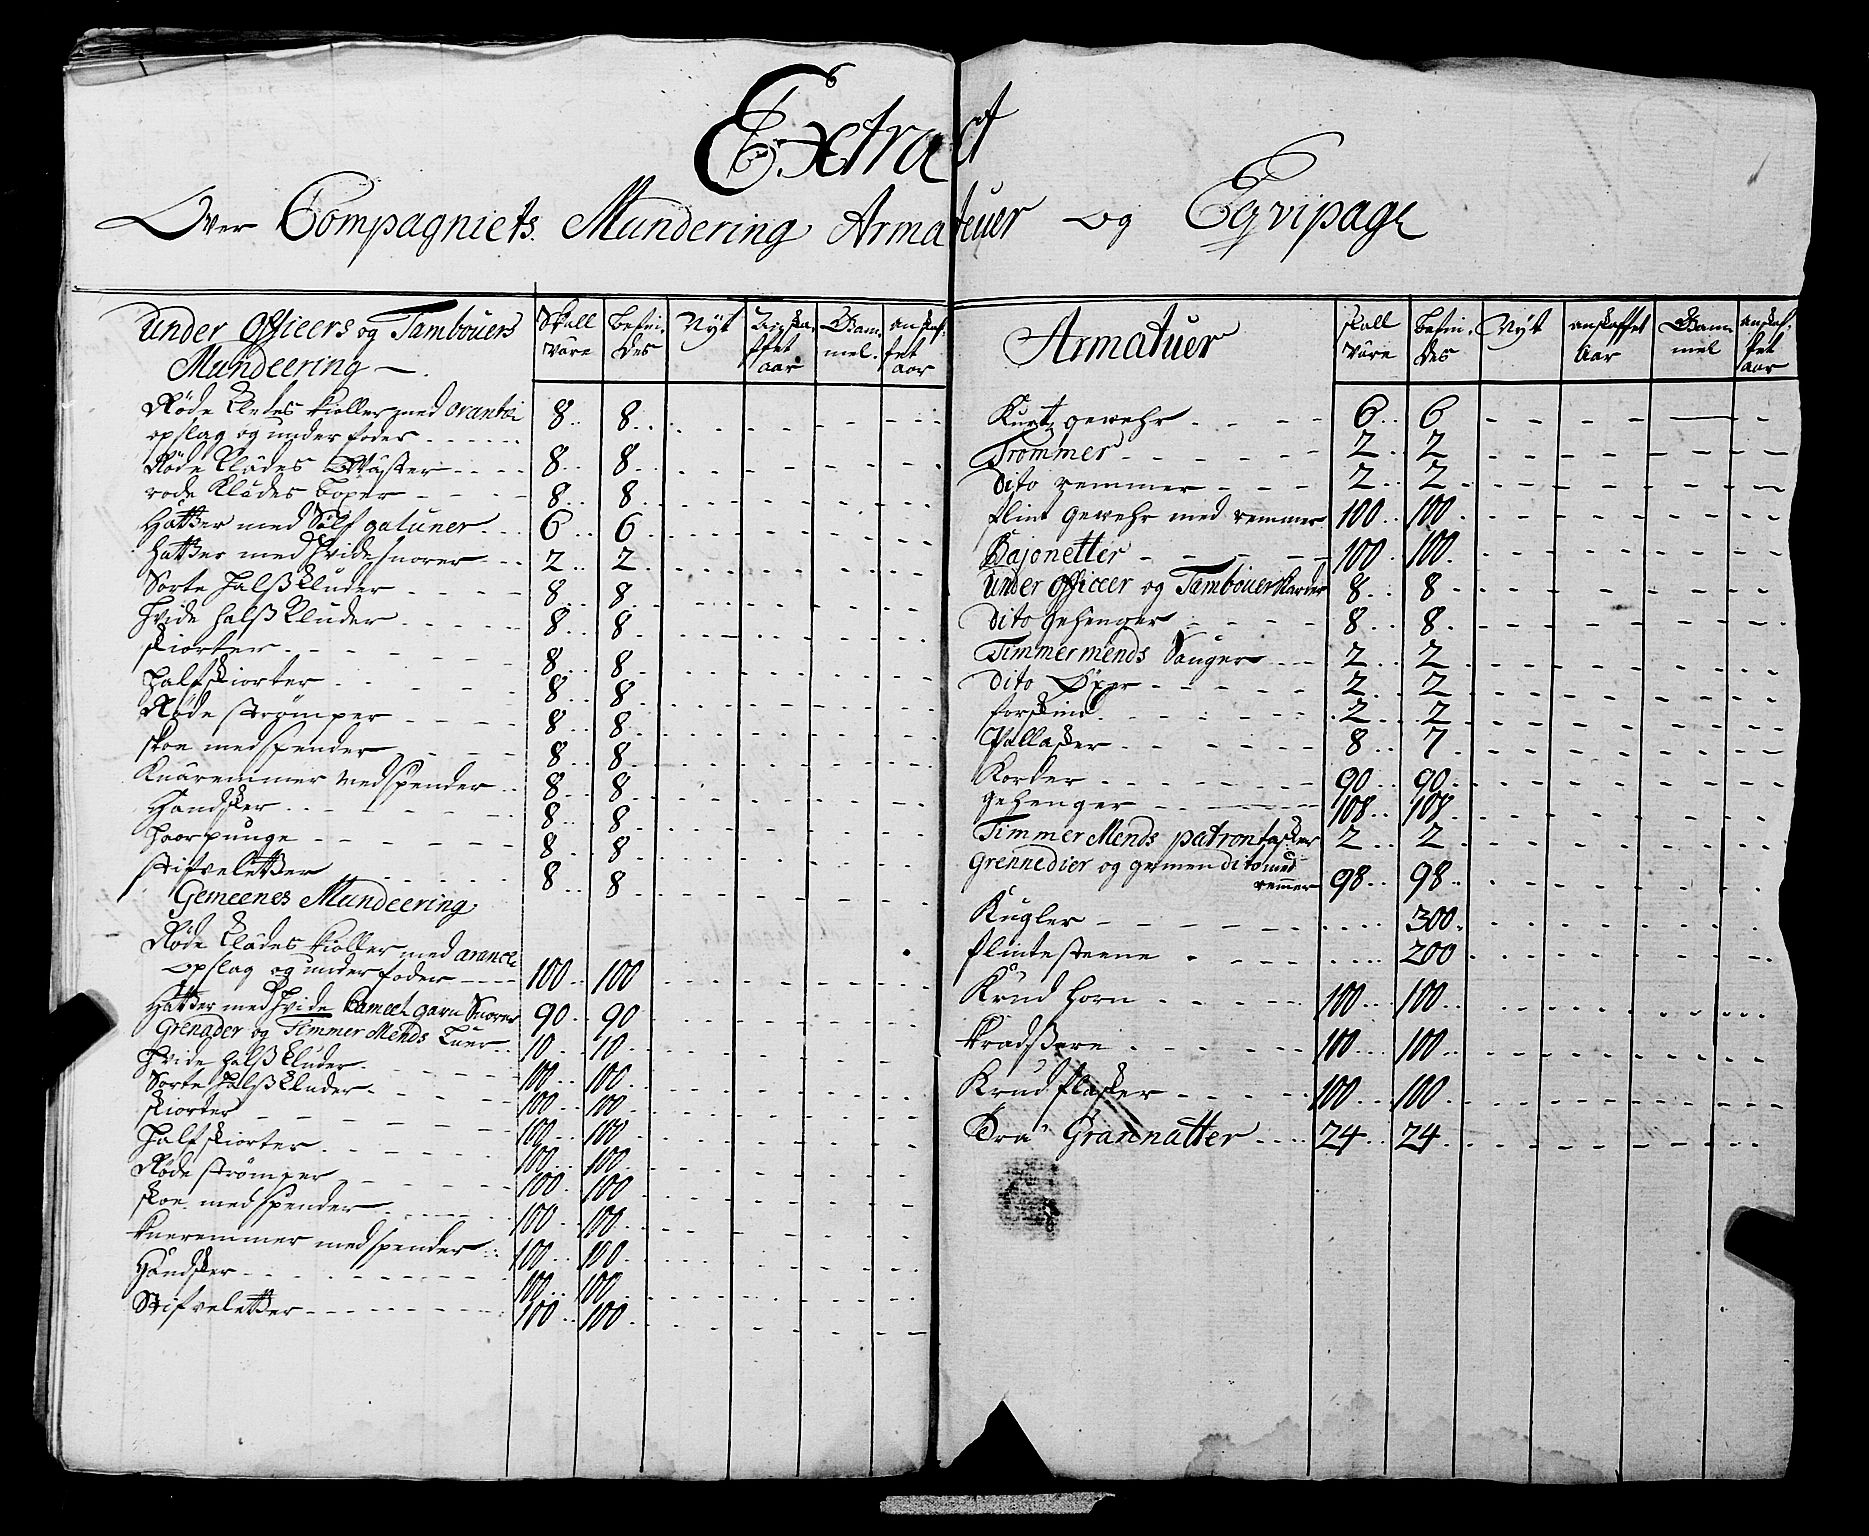 Extract
Over Compagniets Mundering Armatuer og Eqvipage
Under Officers og Tambouers
Mundeering
Skall være
Befindes
Nyt
Anskaffet aar
Gammel
anskaffet aar
Røde Kledes Kioller med orantzi
opslag og under foder 8 8
Røde Klædes Væster 8 8
røde Klædes Boxer 8 8
Hatter med Sølf galuner 6 6
Hatter med hvide snorer 2 2
Sorte halsKluder 8 8
Hvide halsKluder 8 8
skiorter 8 8
Half skiorter 8 8
Røde strømper 8 8
skoe med spender 8 8
Knæremmer med spender 8 8
Handsker 8 8
Haarpunge 8 8
stifveletter 8 8
Gemeenes Mundeering
Røde Klædes Kioller med
opslag og under foder 100 100
Hatter med hvide Cameel garn Snorer 90 90
Grenader og Timmer Mends Luer 10 10
Hvide halsKluder 100 100
Sorte halsKluder 100 100
skiorter 100 100
Half skiorter 100 100
Røde strømper 100 100
skoe med spender 100 100
Kneremmer med spender 100 100
Handsker 100 100
Stifveletter 100 100
Armatuer
skall være
befindes
Nyt
anskaffet aar
Gammel
anskaffet aar
Kurtz gewehr 6 6
Trommer 2 2
dito remmer 2 2
flint gewehr med remmer 100 100
Bajonetter 100 100
Under Officeer og Tambouer Karder 8 8
dito gehenger 8 8
Timmermends Sauger 2 2
dito Øxer 2 2
forskind 2 2
Pallasker 8 7
Korder 90 90
gehenger 108 108
Timmer Mends patrontasker 2 2
Grennedier og gemen dito med
remmer 98 98
Kugler 300
flintesteene 200
Krud horn 100 100
Kradsere 100 100
Krud flasker 100 100
Granatter 24 24